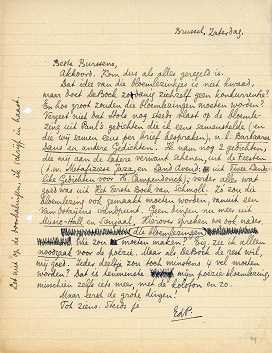 Brussel, Zaterdag.
Beste Burssens,
Akkoord. Kom dus als alles geregeld is.
Dat idee van die bloemlezinkjes is niet kwaad,
maar doet De Bock zichzelf geen konkurrentie?
En hoe groot zouden die bloemlezingen moeten worden?
Vergeet niet dat Stols nog steeds staat op de bloemle-
zing uit Paul's gedichten die ik eens samenstelde (en
die wij eens per brief bespraken), n.l. Barbaarse
dans en andere Gedichten. Ik nam nog 2 gedichten,
die mij aan de laters verwant schenen, uit de Feesten
(t.w. Metafizische Jazz en Land Avond), uit Twee Zinde-
lijke Gedichten voor F. Campendonck; verder alles wat
goed was uit Het Eerste Boek van Schmoll. Zo zou die
bloemlezing ook gemaakt moeten worden, vanuit een
Van Ostaijens standpunt. Geen dingen nu meer uit
Music-Hall en Sienjaal. Hierover spreken we ook nader.
die bloemlezingen
Wie zou moeten maken? Bij zie ik alleen
noodzaak voor de poëzie. Maar als De Bock de rest wil,
mij goed. Ieder deeltje zou toch minstens 4 vel moeten
worden? Dat is tenminste mijn poëzie-bloemlezing,
misschien zelfs iets meer, met de kolofon en zo.
Maar eerst de grote dingen!
Tot ziens. Steeds je
EdP.
Let niet op de doorhalingen, ik schrijf in haast.